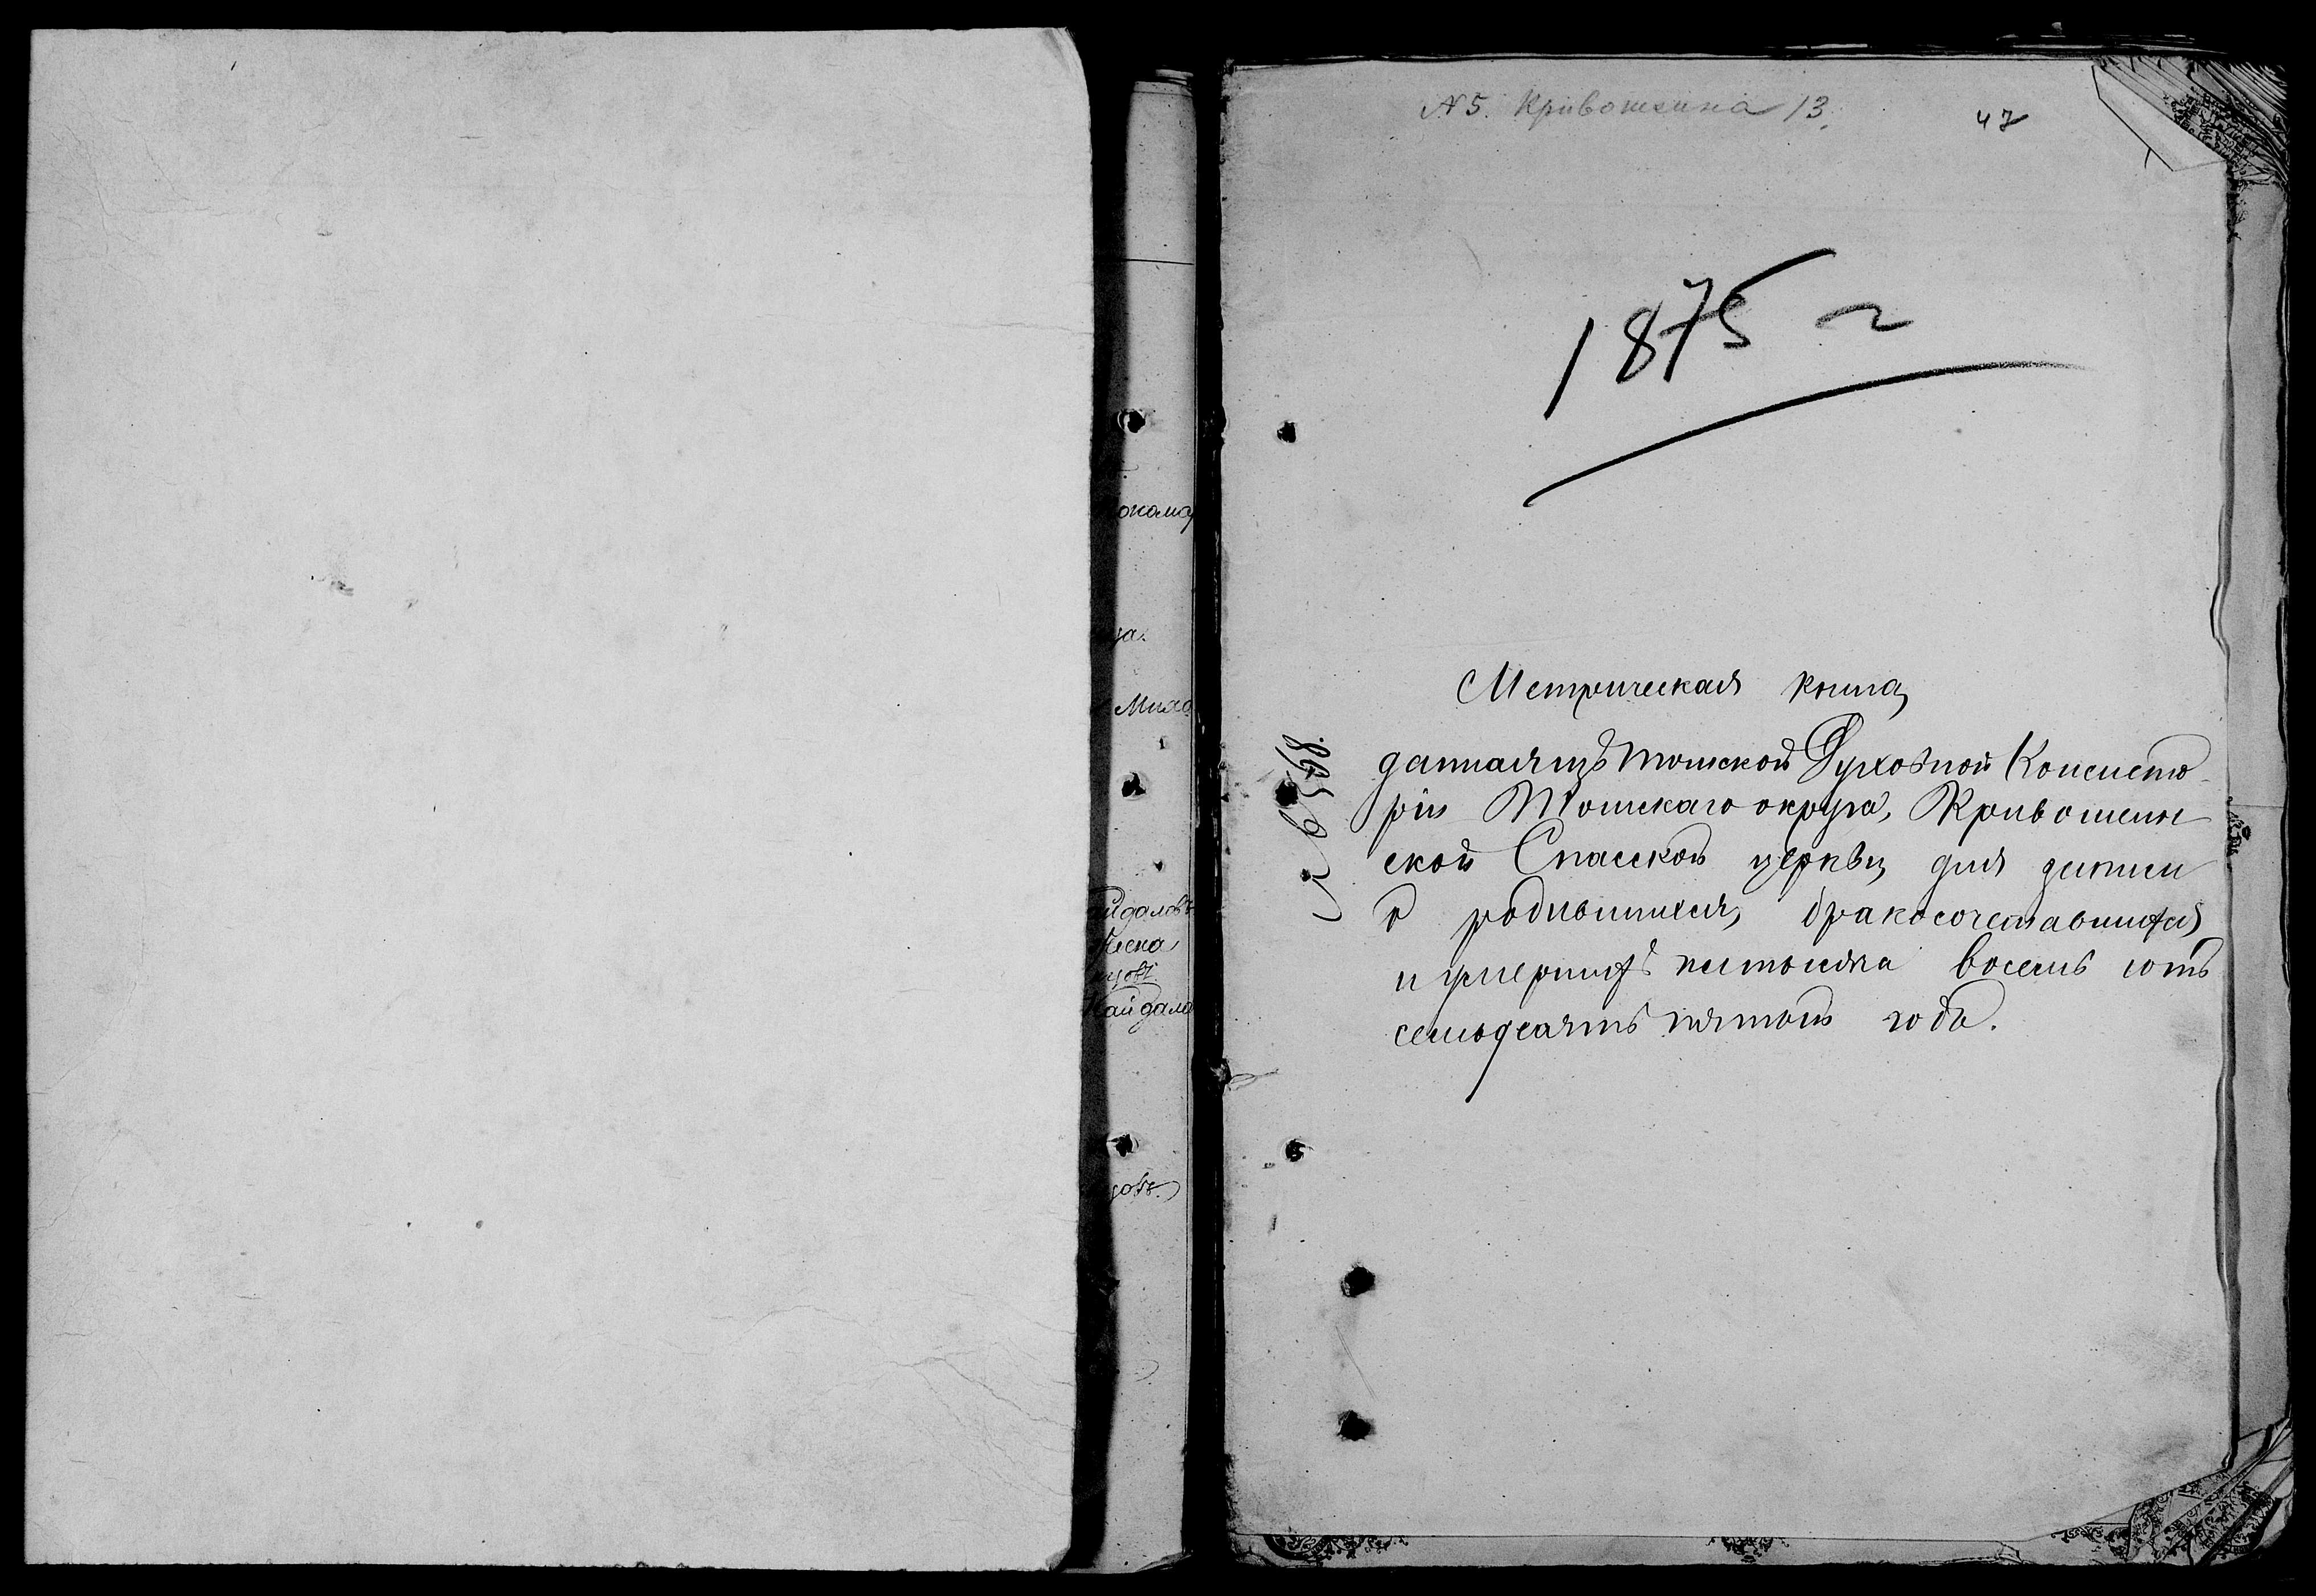 № 5. Кривошеина 13.
47
1875 г
Метрическая книга
данная изъ Томской Духовной Консисто-
ріи Томскаго округа, Кривошеин
ской Спасской церкви, для записи
о родившихся, бракосочетавшихся
и умершихъ на тысяча восемь сотъ
семьдесятъ пятый годъ.
окома
ца.
Миха
айдаловъ
цовъ
Кайдало
цовъ.